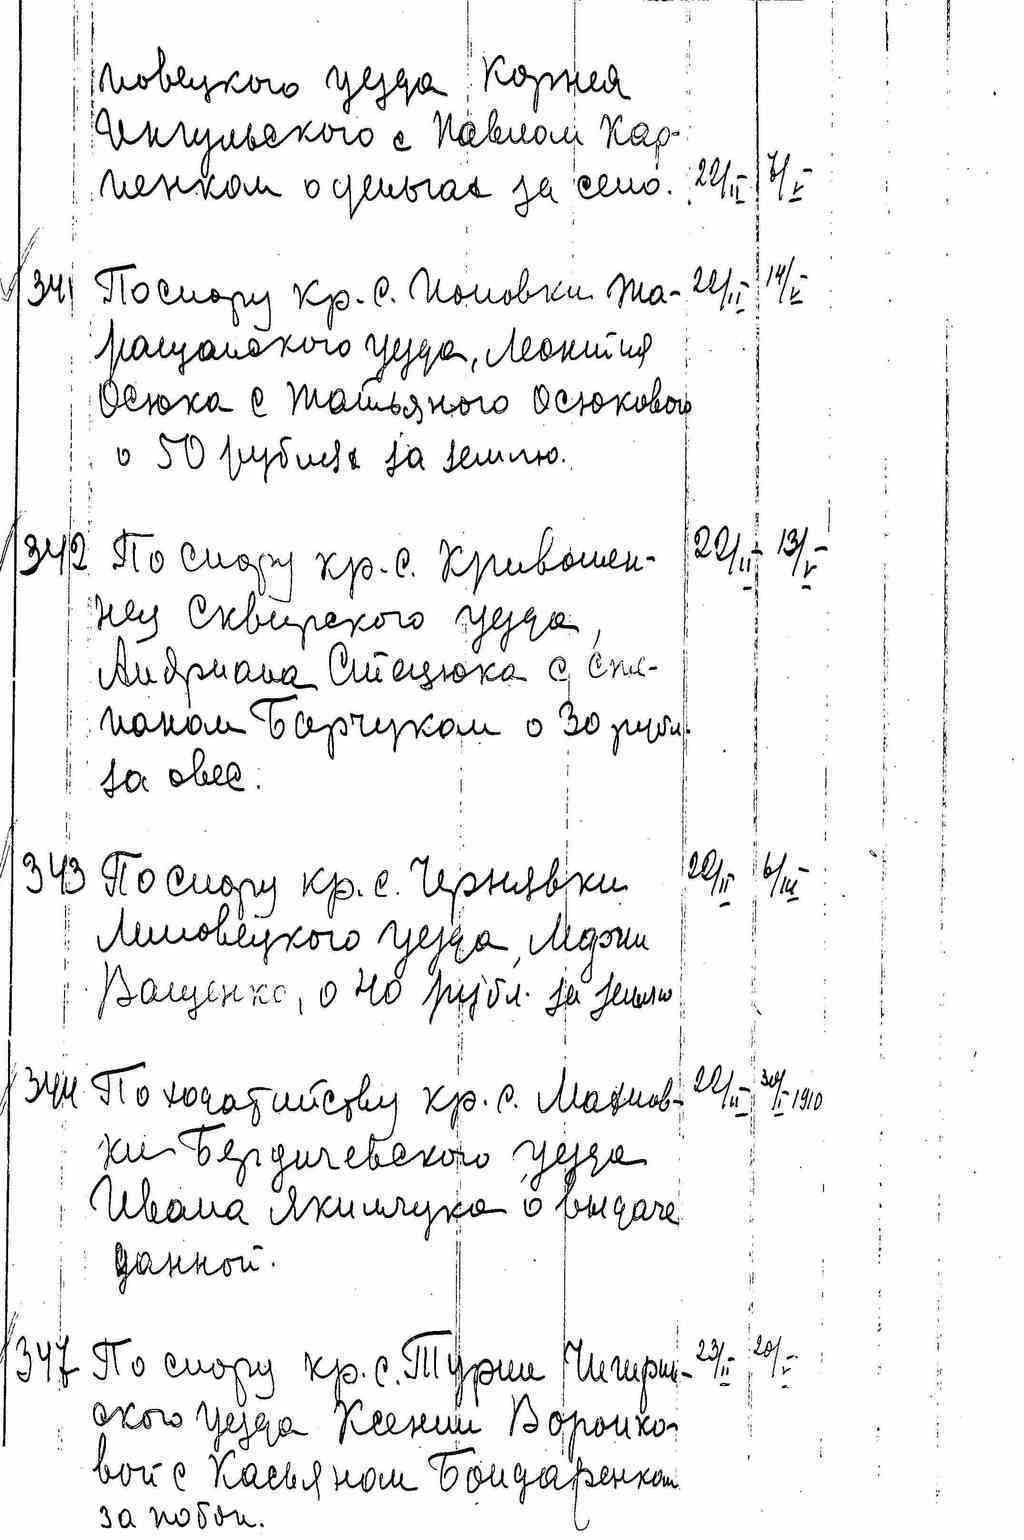 повецкого уезда Корнея
Ингульского с Павлом Кар-
пенком о деньгах за сено. 22/II 7/V
341 По спору кр. с. Поповки Та- 22/II 14/V
ращанского уезда, Леонтия
Осюка с Татьяного Осюковой
о 50 рублях за землю.
342 По спору кр. с. Кривошеи- 22/II 13/V
нец Сквирского уезда,
Андриана Стецюка с Сте-
паном Барчуком о 30 рубл.
за овес.
343 По спору кр. с. Чернявки 22/II 6/III
Липовецкого уезда,
Ващенко, о 40 рубл. за землю
344 По ходатийству кр. с. Махнов- 22/II 30/I 1910
ки Бердичевского уезда
Ивана Якимчука о выдаче
данной.
347 По спору кр. с. Турии Чигирин- 23/II 20/V
ского уезда Ксении Воронко-
вой с Касьяном Бондаренком
за побои.